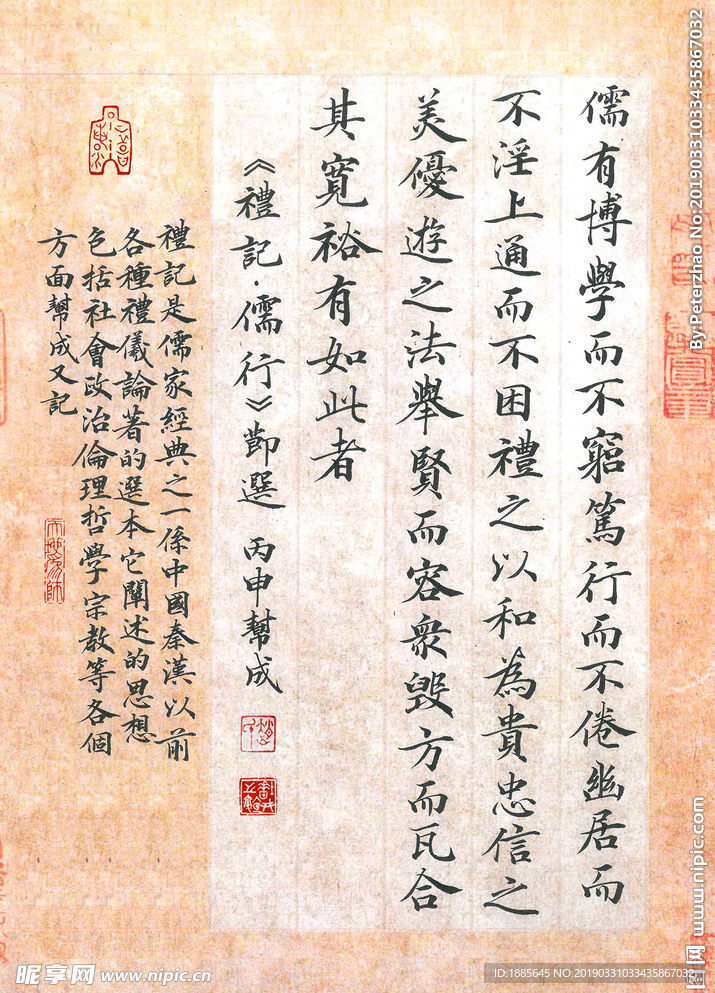 儒有博學而不窮篤行而不倦幽居而
不淫上通而不困禮之以和為貴忠信之
美優遊之法舉賢而容衆毀方而瓦合
其寬裕有如此者
《禮記·儒行》節選 丙申幫成
禮記是儒家經典之一係中國秦漢以前
各種禮儀論著的選本它闡述的思想
包括社會政治倫理哲學宗教等各個
方面幫成又記
By:Peterzhao No:20190331033435867032
昵享网 www.nipic.com
昵享网 www.nipic.cn
ID:1885645 NO:20190331033435867032